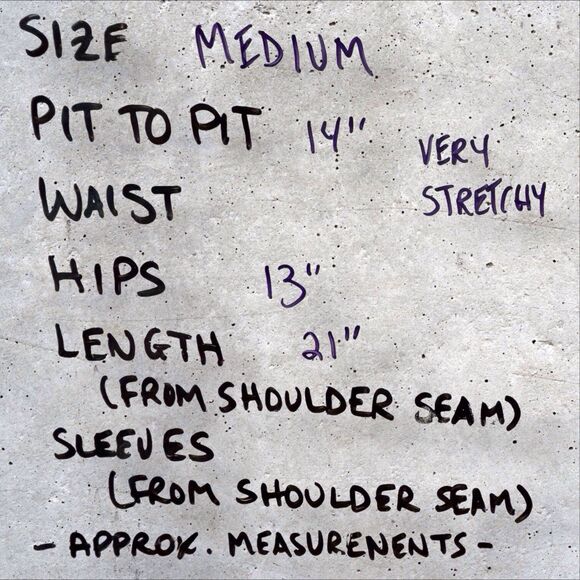 SIZE MEDIUM
PIT TO PIT 14" VERY
WAIST STRETCHY
HIPS 13"
LENGTH 21"
(FROM SHOULDER SEAM)
SLEEVES
(FROM SHOULDER SEAM)
- APPROX. MEASURENENTS -